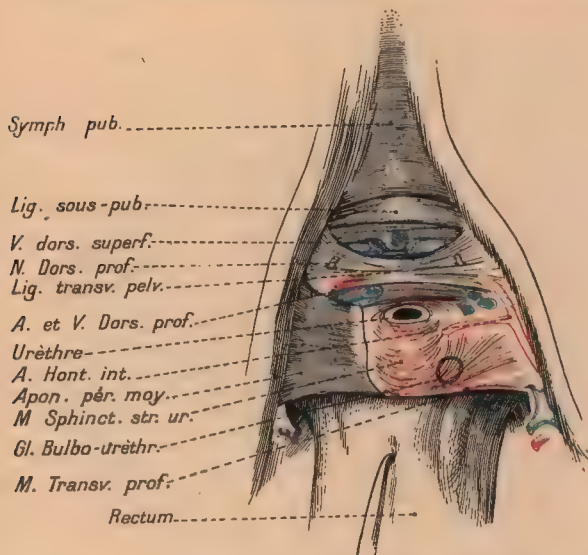 Symph pub.
Lig. sous-pub.
V. dors. superf.
N. Dors. prof.
Lig. transv. pelv.
A. et V. Dors. prof.
Urèthre
A. Hont. int.
Apon. pér. moy.
M Sphinct. str. ur.
Gl. Bulbo-uréthr.
M. Transv. prof.
Rectum